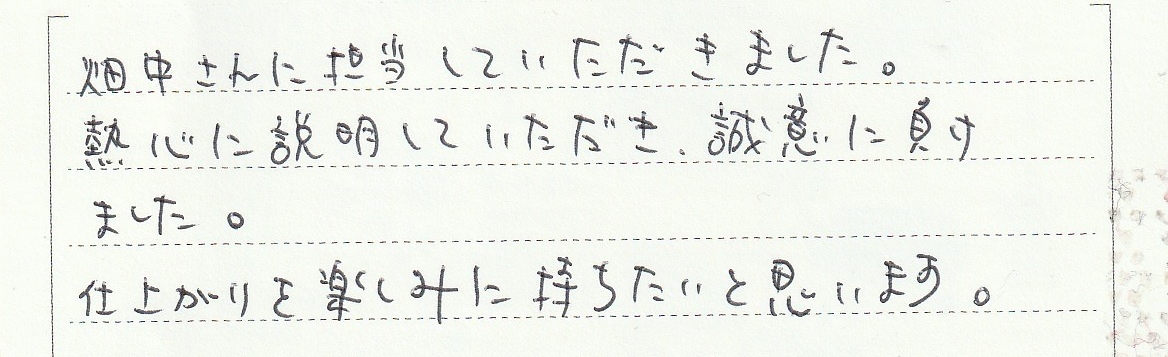 畑中さんに担当していただきました。
熱心に説明していただき、誠意に負け
ました。
仕上がりを楽しみに持ちたいと思います。